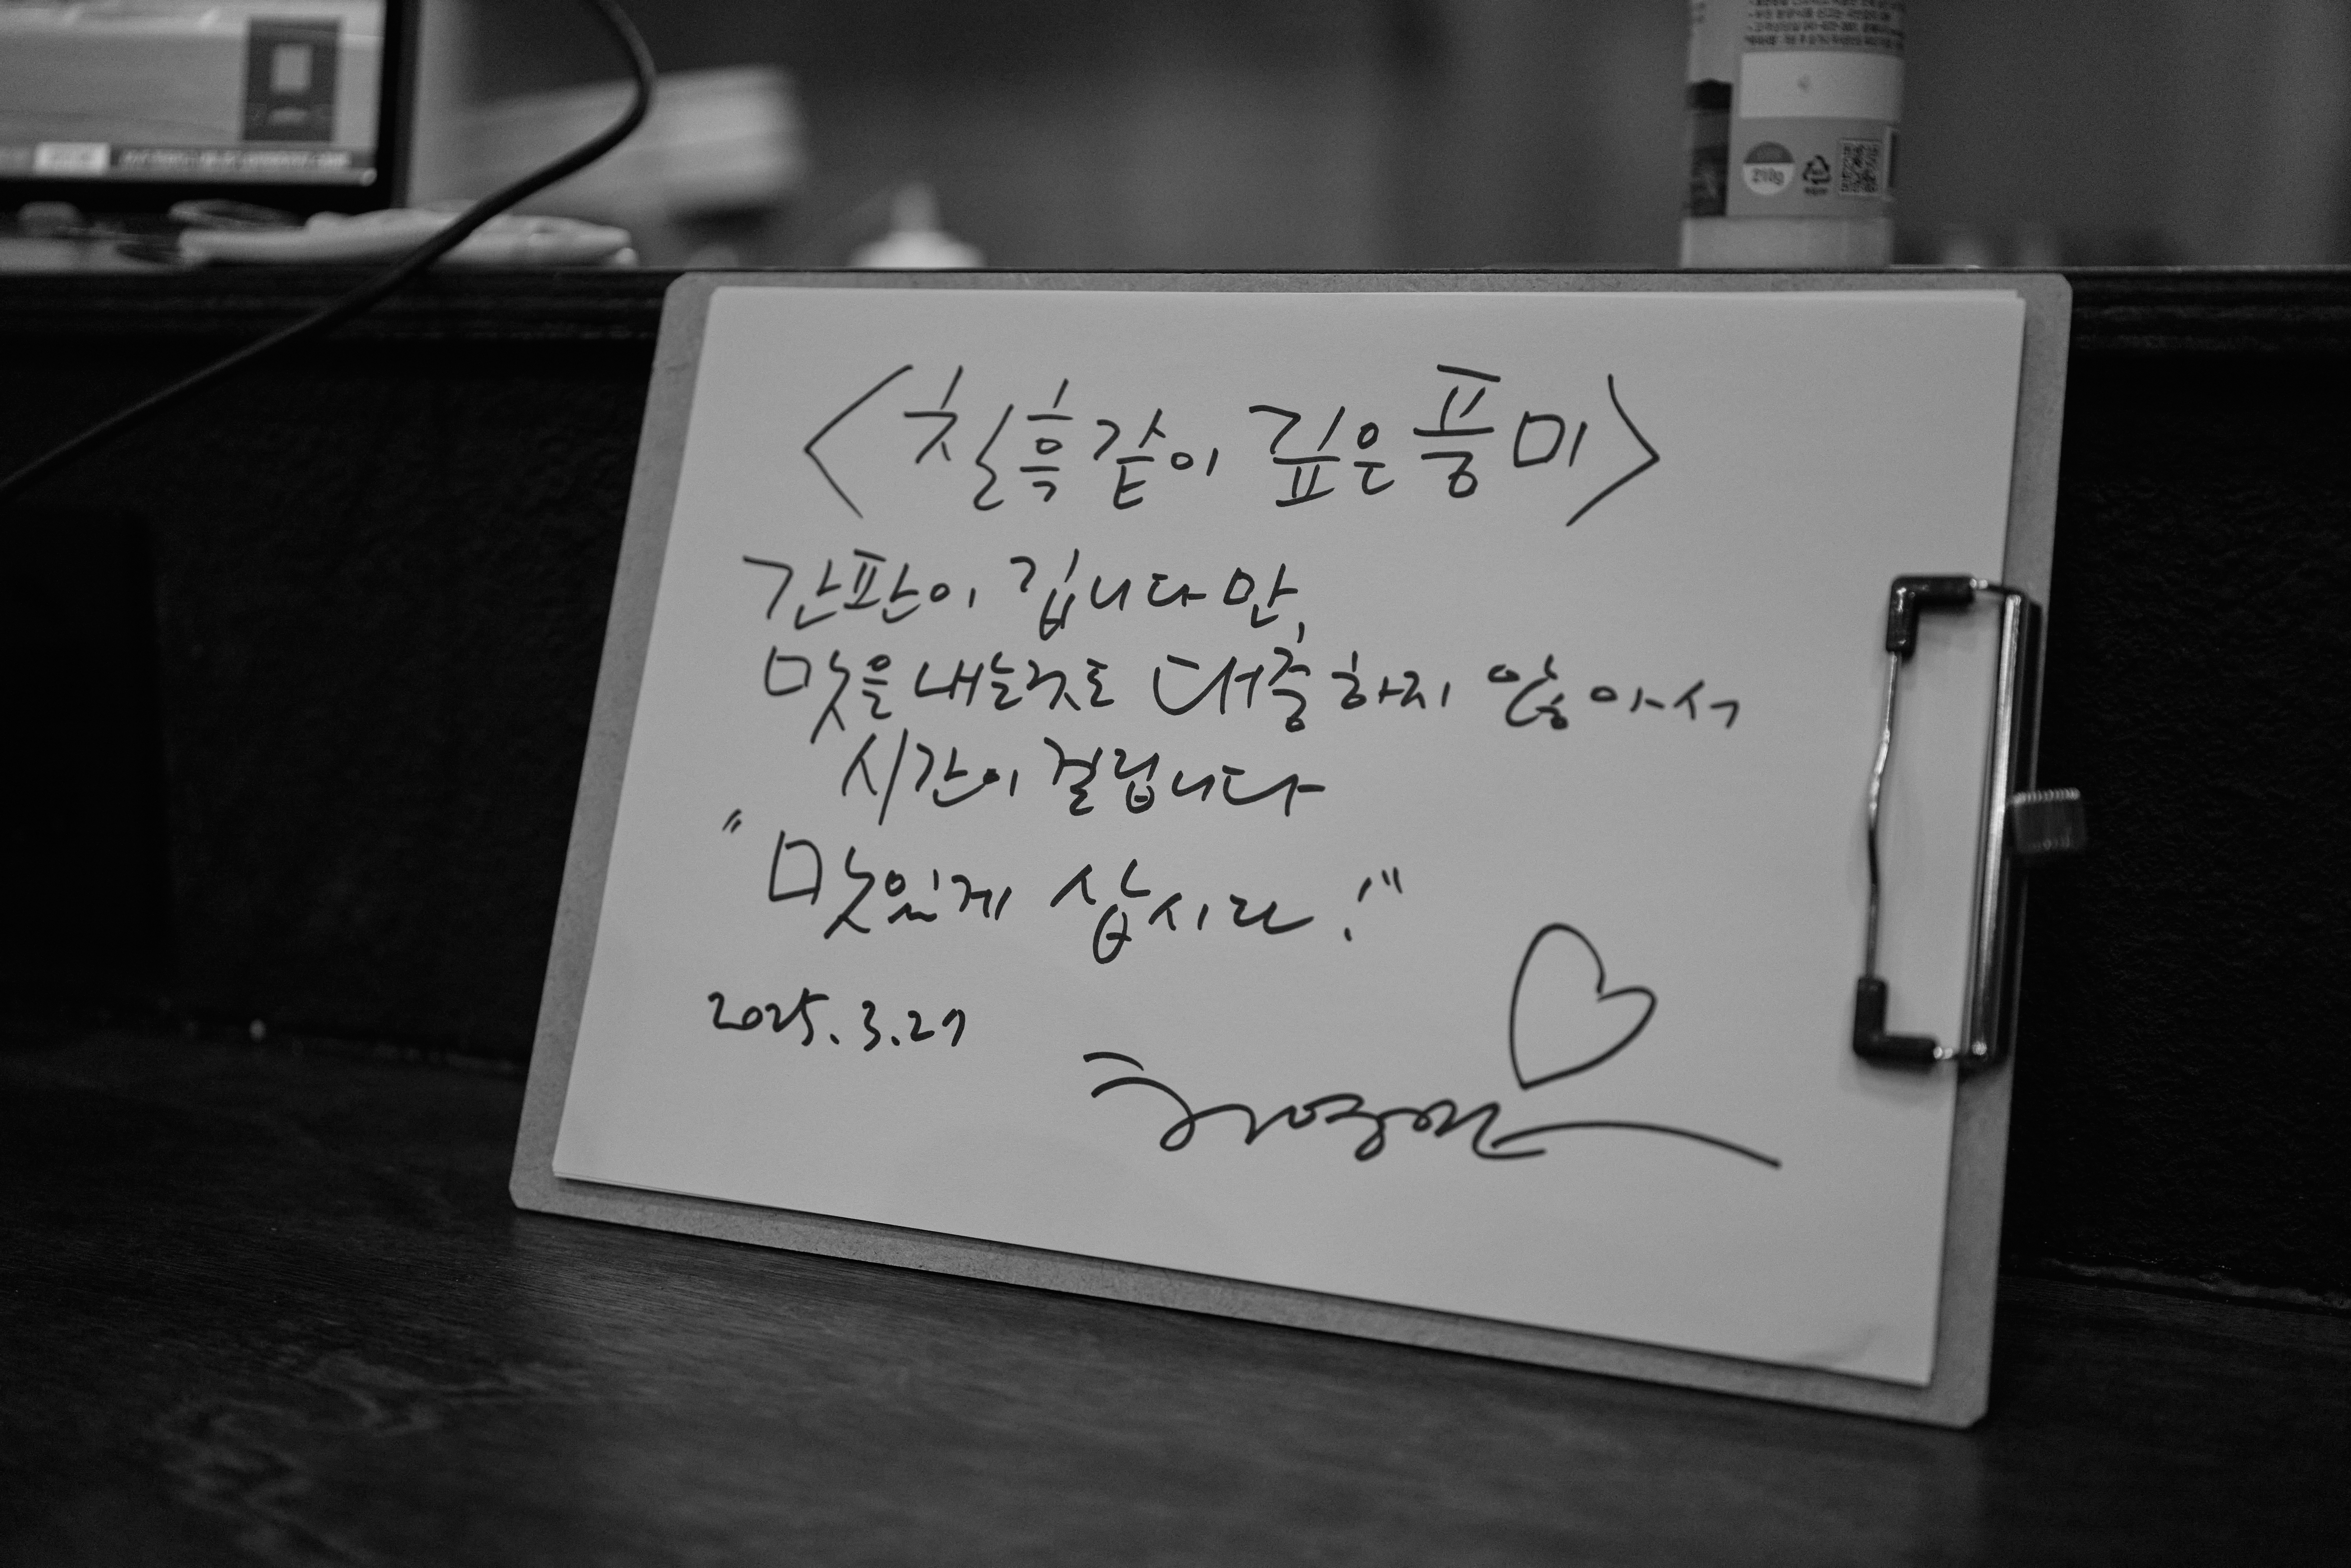 <칠흑같이 깊은 풍미>
간판이 깁니다만,
맛을 내는것도 대충하지 않아서
시간이 걸립니다
"맛있게 삽시다!"
2025.3.27
210g